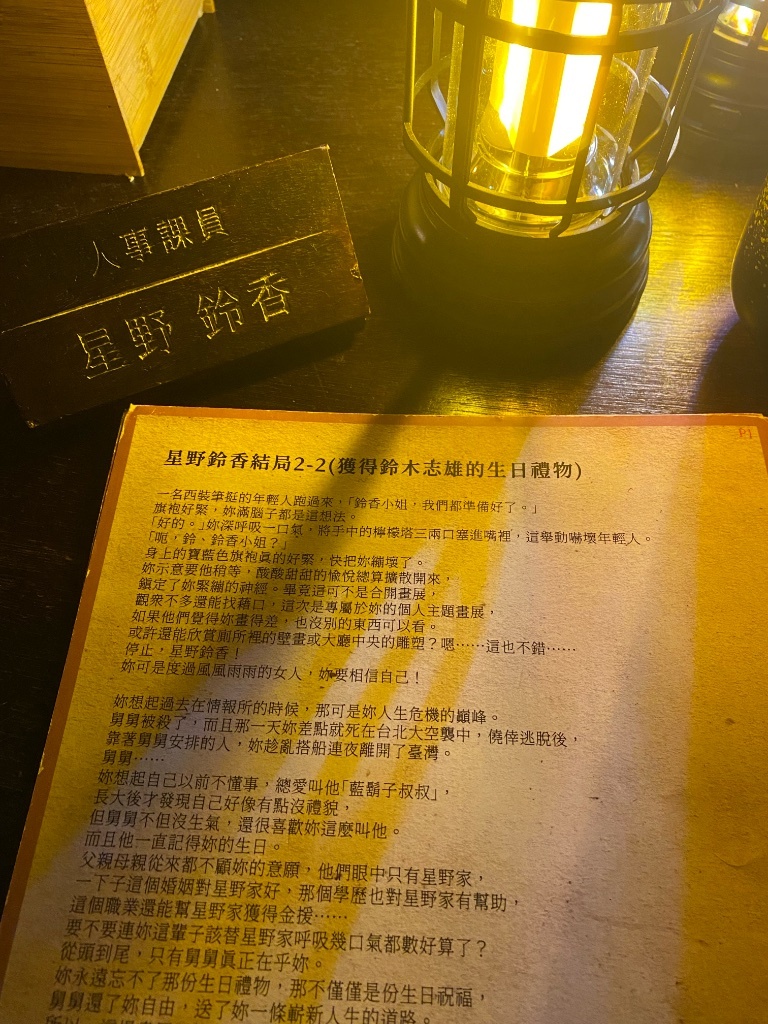 人事課員
星野 鈴香
P1
星野鈴香結局2-2(獲得鈴木志雄的生日禮物)
一名西裝筆挺的年輕人跑過來，「鈴香小姐，我們都準備好了。」
旗袍好緊，妳滿腦子都是這想法。
「好的。」妳深呼吸一口氣，將手中的檸檬塔三兩口塞進嘴裡，這舉動嚇壞年輕人。
「呃，鈴、鈴香小姐？」
身上的寶藍色旗袍真的好緊，快把妳繃壞了。
妳示意要他稍等，酸酸甜甜的愉悅總算擴散開來，
鎮定了妳緊繃的神經。畢竟這可不是合開畫展，
觀眾不多還能找藉口，這次是專屬於妳的個人主題畫展，
如果他們覺得妳畫得差，也沒別的東西可以看。
或許還能欣賞廁所裡的壁畫或大廳中央的雕塑？嗯……這也不錯……
停止，星野鈴香！
妳可是度過風風雨雨的女人，妳要相信自己！
妳想起過去在情報所的時候，那可是妳人生危機的巔峰。
舅舅被殺了，而且那一天妳差點就死在台北大空襲中，僥倖逃脫後，
靠著舅舅安排的人，妳趁亂搭船連夜離開了臺灣。
舅舅……
妳想起自己以前不懂事，總愛叫他「藍鬍子叔叔」，
長大後才發現自己好像有點沒禮貌，
但舅舅不但沒生氣，還很喜歡妳這麼叫他。
而且他一直記得妳的生日。
父親母親從來都不顧妳的意願，他們眼中只有星野家，
一下子這個婚姻對星野家好，那個學歷也對星野家有幫助，
這個職業還能幫星野家獲得金援……
要不要連妳這輩子該替星野家呼吸幾口氣都數好算了？
從頭到尾，只有舅舅真正在乎妳。
妳永遠忘不了那份生日禮物，那不僅僅是份生日祝福，
舅舅還了妳自由，送了妳一條嶄新人生的道路。